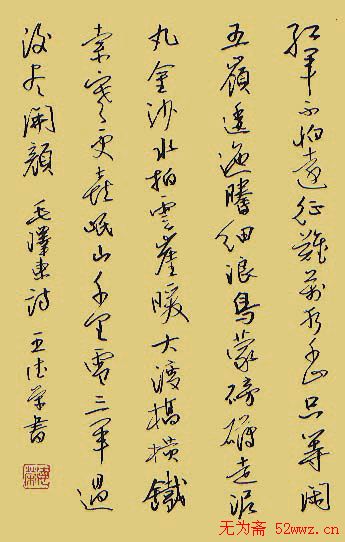 红軍不怕遠征難萬水千山只等闲
五嶺逶迤騰細浪烏蒙磅礴走泥
丸金沙水拍雲崖暖大渡橋横鐵
索寒更喜岷山千里雪三軍過
後尽開顔 毛澤東詩 王德荣書
无为斋 52wwz.cn